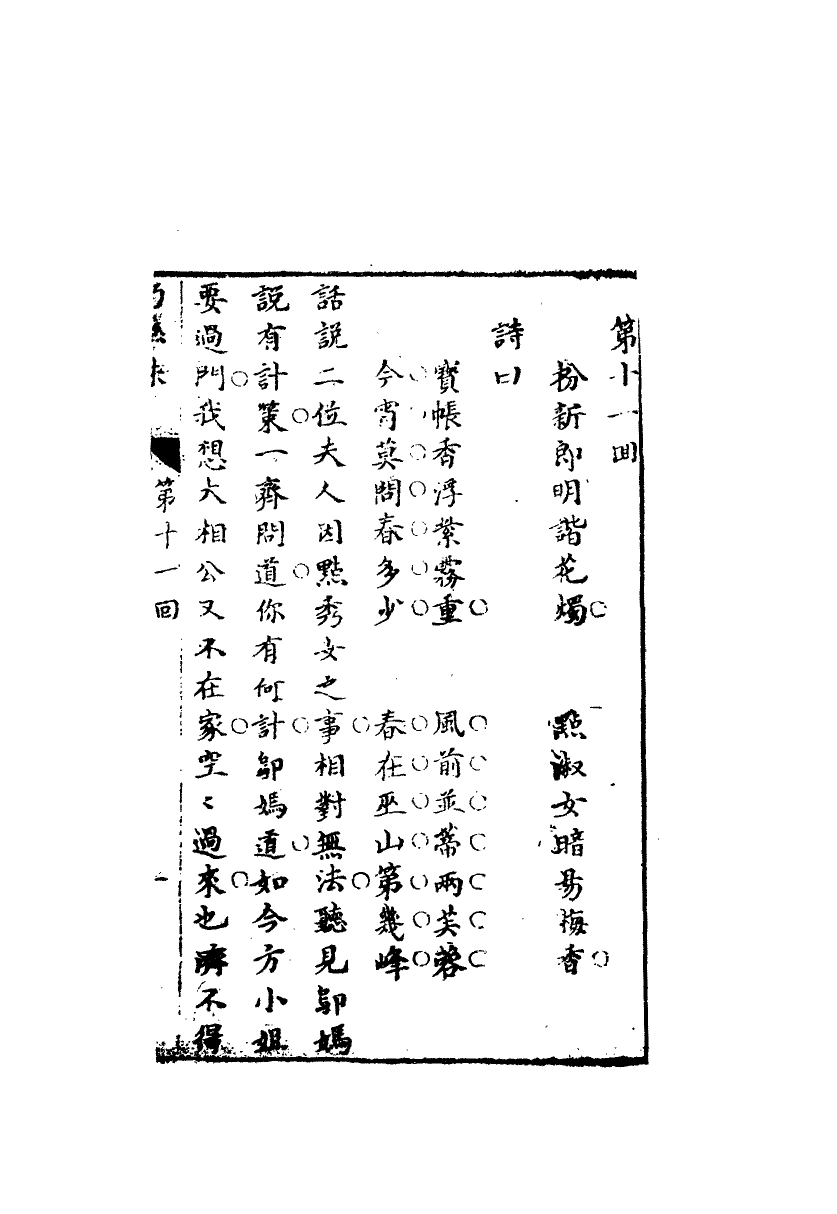 第十一回
扮新郎明諧花燭　點淑女暗易梅香
詩曰
寶帳香浮紫霧重　風前並蒂兩芙蓉
今宵莫問春多少　春在巫山第幾峰
話說二位夫人因點秀女之事相對無法聽見鄔媽
說有計策一齊問道你有何計鄔媽道如今方小姐
要過門我想大相公又不在家空〻過來也濟不得
第十一回
一